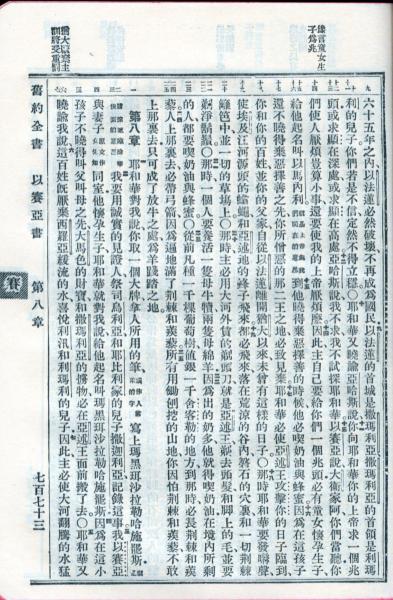 豫言童女生
子爲兆
六十五年之內以法蓮必然破壞不再成爲國民以法蓮的首城是撒瑪利亞撒瑪利亞的首領是利瑪
利的兒子你們若是不信定然不得立穩〇耶和華又曉諭亞哈斯說你向耶和華你的上帝求一個兆
頭或求顯在深處或求顯在高處亞哈斯說我不求我不試探耶和華以賽亞說大衞家阿你們當聽你
們使人厭煩豈算小事還要使我的上帝厭煩麽因此主自己要給你們一個兆頭必有童女懷孕生子
給他起名叫以馬內利到他曉得棄惡擇善的時候他必喫奶油與蜂蜜因爲在這孩子
還不曉得棄惡擇善之先你所憎惡的那二王之地必致見棄耶和華必使亞述王攻擊你的日子臨到
你和你的百姓並你的父家自從以法蓮離開猶大以來未曾有這樣的日子〇那時耶和華要發嘶聲
使埃及江河源頭的蠅和亞述地的蜂子飛來都必飛來落在荒涼的谷內磐石的穴裏和一切荊棘
籬笆中並一切的草場上〇那時主必用大河外賃的薙頭刀就是亞述王薙去頭髮和脚上的毛並要
薙淨鬍鬚〇那時一個人要養活一隻母牛犢兩隻母綿羊因爲出的奶多他就得喫奶油在境內所剩
的人都要喫奶油與蜂蜜〇從前凡種一千棵葡萄樹値銀一千舍客勒的地方到那時必長荊棘和蒺
藜人上那裏去必帶弓箭因爲遍地滿了荊棘和蒺藜所有用鋤刨挖的山地你因怕荊棘和蒺藜不敢
上那裏去只可成了放牛之處爲羊踐踏之地。
第八章 耶和華對我說你取一個大牌拿人所用的筆寫上瑪黑珥沙拉勒哈施罷斯
我要用誠實的見證人祭司烏利亞和耶比利家的兒子撒迦利亞記錄這事我以賽亞
與妻子同室他懷孕生子耶和華就對我說給他起名叫瑪黑珥沙拉勒哈施罷斯因爲在這小
孩子不曉得叫父叫母之先大馬色的財寶和撒瑪利亞的擄物必在亞述王面前搬了去〇耶和華又
曉諭我說這百姓旣厭棄西羅亞緩流的水喜悅利汛和利瑪利的兒子因此主必使大河翻騰的水猛
舊約全書 以賽亞書 第八章 七百七十三
賽